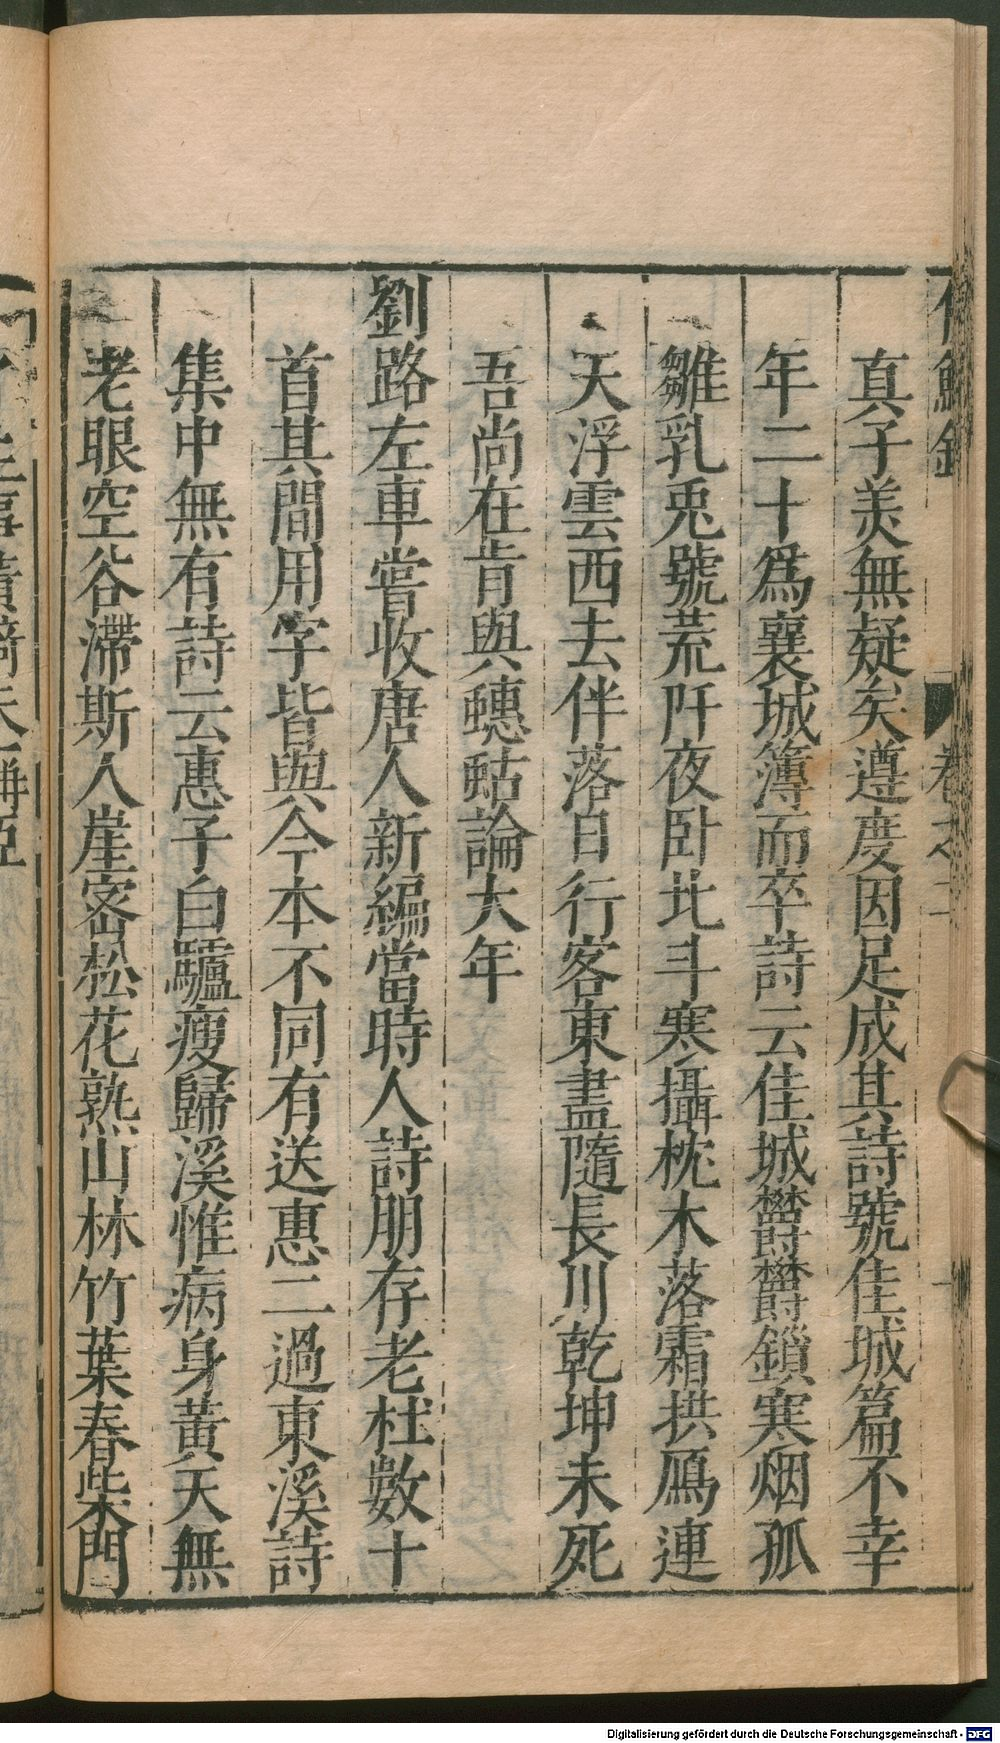 真子羙無疑矣遵度因足成其詩號佳城篇不幸
年二十爲襄城簿而卒詩云佳城欝欝鎖寒烟孤
雛乳兎號荒阡夜卧北斗寒攝枕木落霜拱鴈連
天浮雲西去伴落日行客東盡隨長川乾坤未死
吾尚在肯與蟪蛄論大年
劉路左車嘗收唐人新編當時人詩册存老杜數十
首其間用字皆與今本不同有送惠二過東溪詩
集中無有詩云惠子白驢瘦歸溪惟病身黃天無
老眼空谷滯斯人崖宻松花熟山林竹葉春柴門
Digitalisierung gefördert durch die Deutsche Forschungsgemeinschaft - DFG